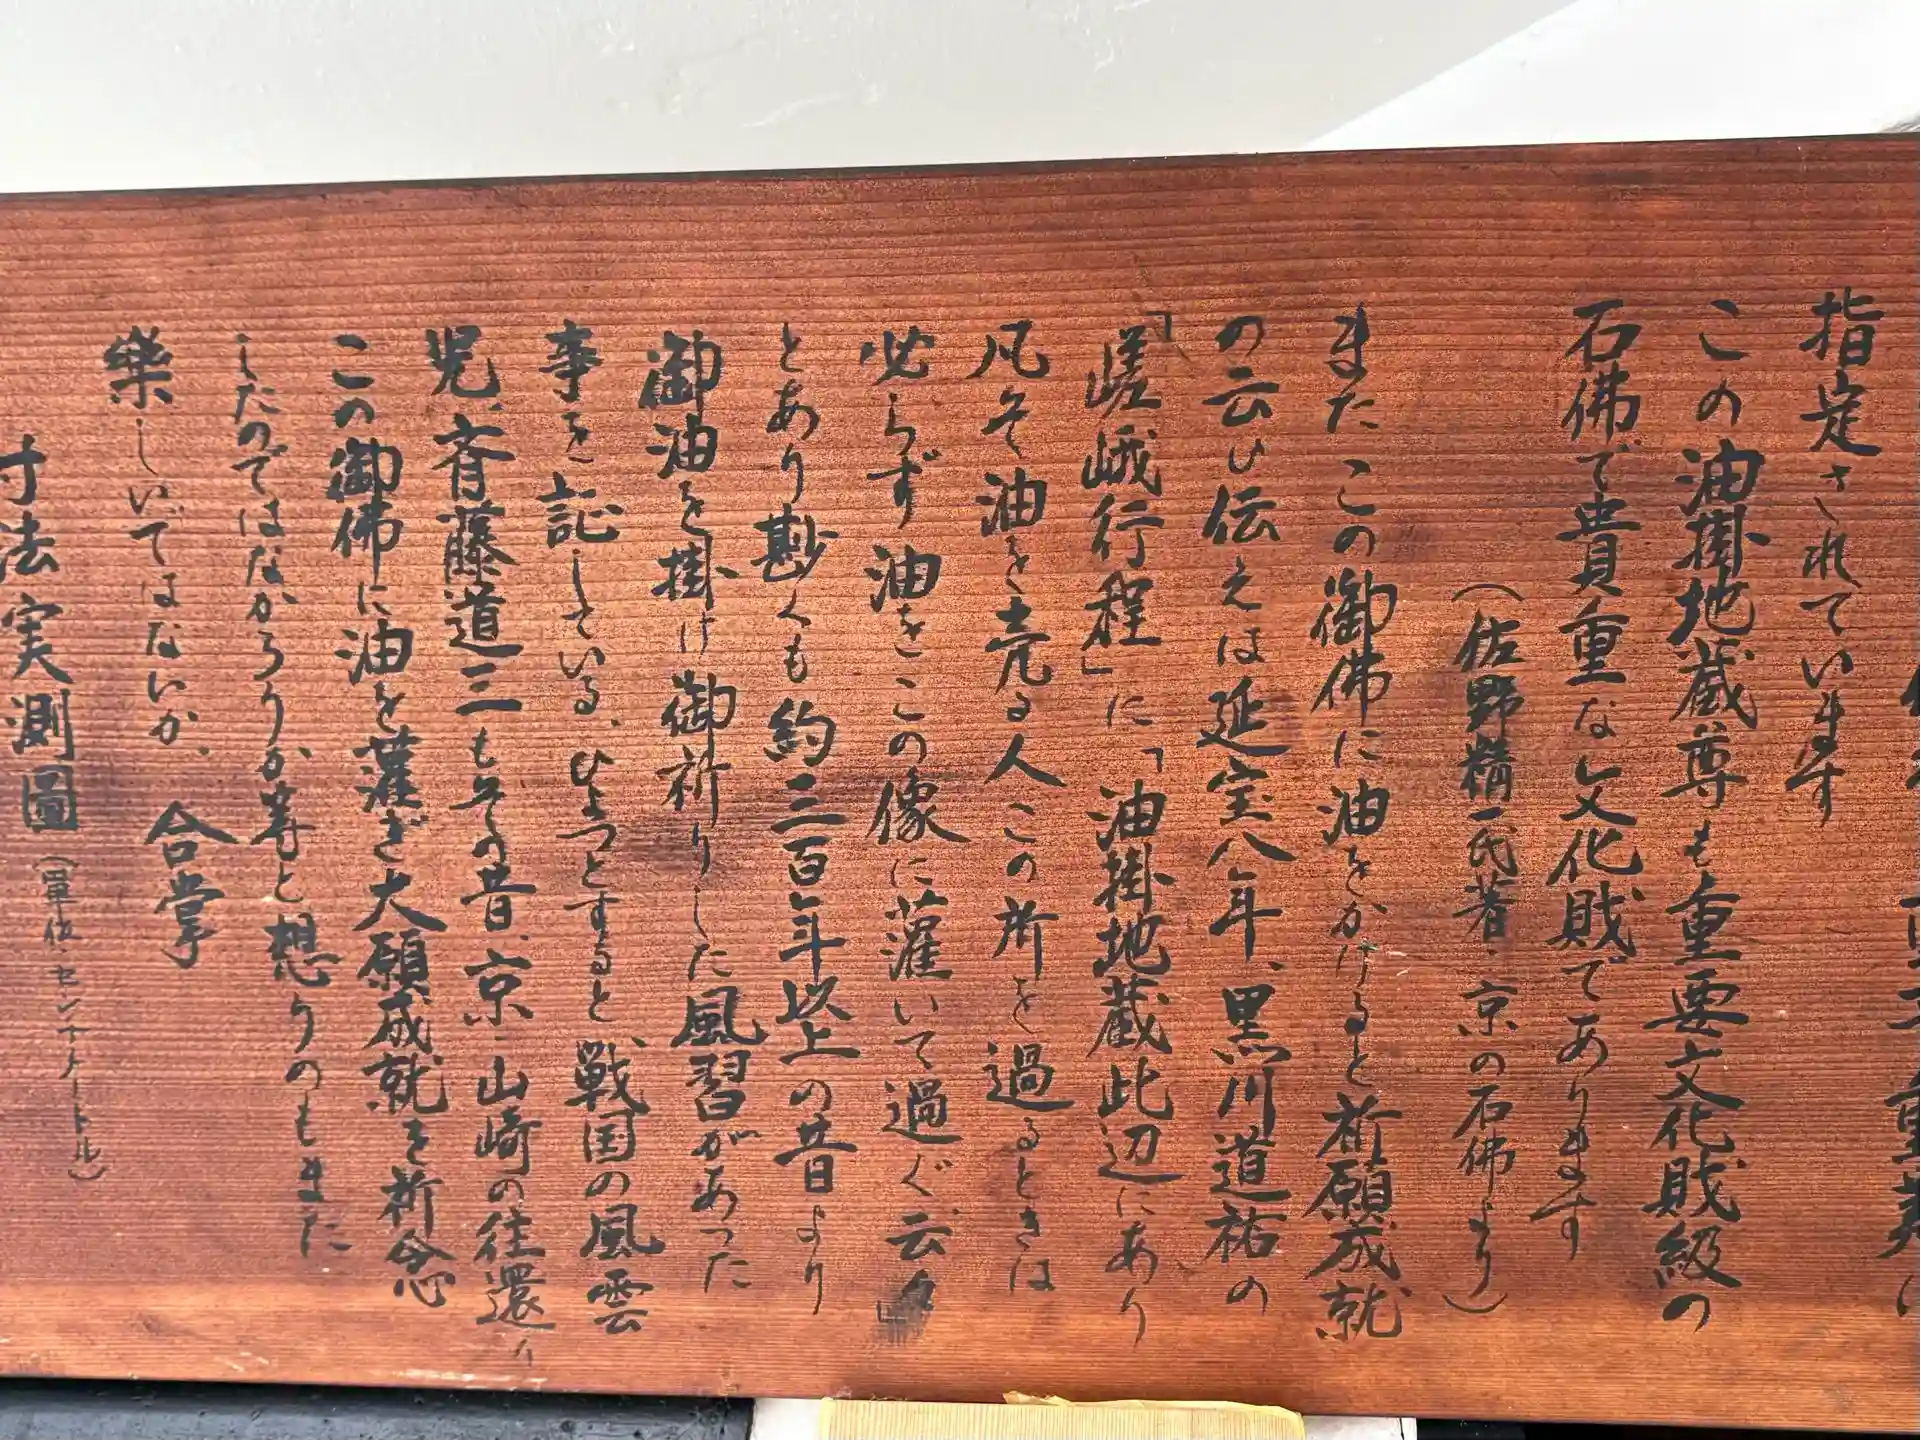 指定されています
この油掛地蔵尊も重要文化財級の
石佛で貴重な文化財であります
（佐野精一氏著 京の石佛より）
またこの御佛に油をかけると祈願成就
の云ひ伝えは延宝八年、黒川道祐の
「嵯峨行程」に「油掛地蔵此辺にあり
凡そ油を売る人この所を過るときは
必らず油をこの像に灌いて過ぐ云々
とあり尠くも約三百年以上の昔より
御油を掛け御祈りした風習があった
事を記している、ひょっとすると、戦国の風雲
児、斉藤道三もその昔、京、山崎の往還に
この御佛に油を灌ぎ大願成就を祈念
したのではなかろうか等と想うのもまた
樂しいではないか、 合掌
寸法実測圖（單位センチメートル）